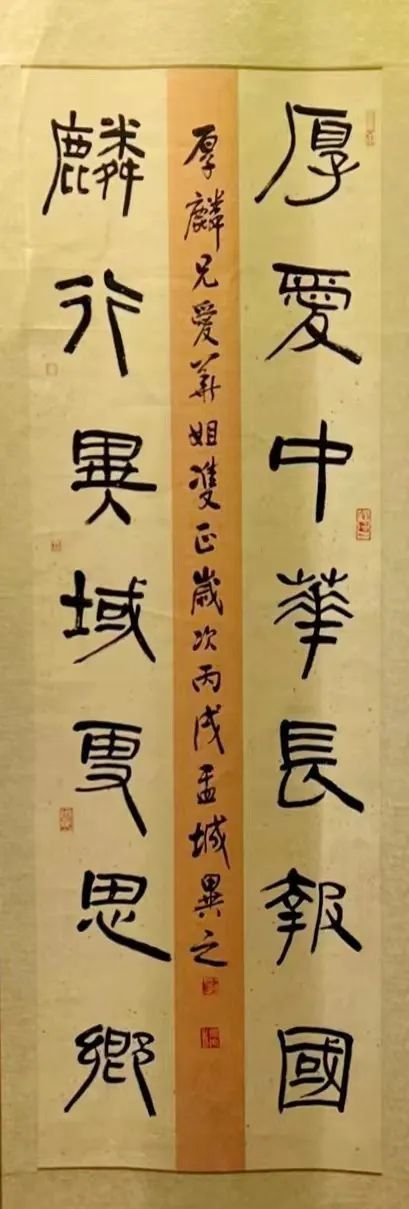 厚愛中華長報國
厚麟兄愛華姐雙正歲次丙戌盂城異之
麟行異域更思鄉